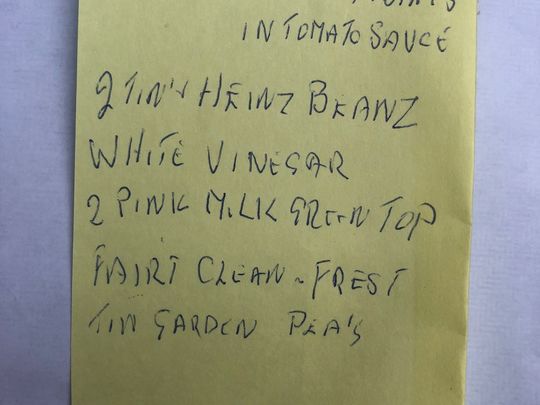 IN TOMATO SAUCE
2 TIN'S HEINZ BEANZ
WHITE VINEGAR
2 PINK MILK GREEN TOP
FAIRT CLEAN - FREST
TIN GARDEN PEA'S